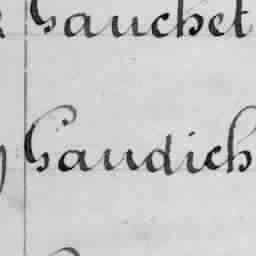 Gauchet
Gaudich